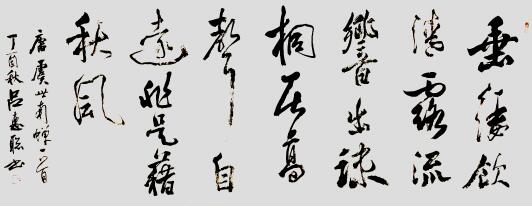 垂緌飲
清露流
響出疎
桐居高
聲自
遠非是藉
秋風
唐虞世南蟬一首
丁酉秋吕惠聪书